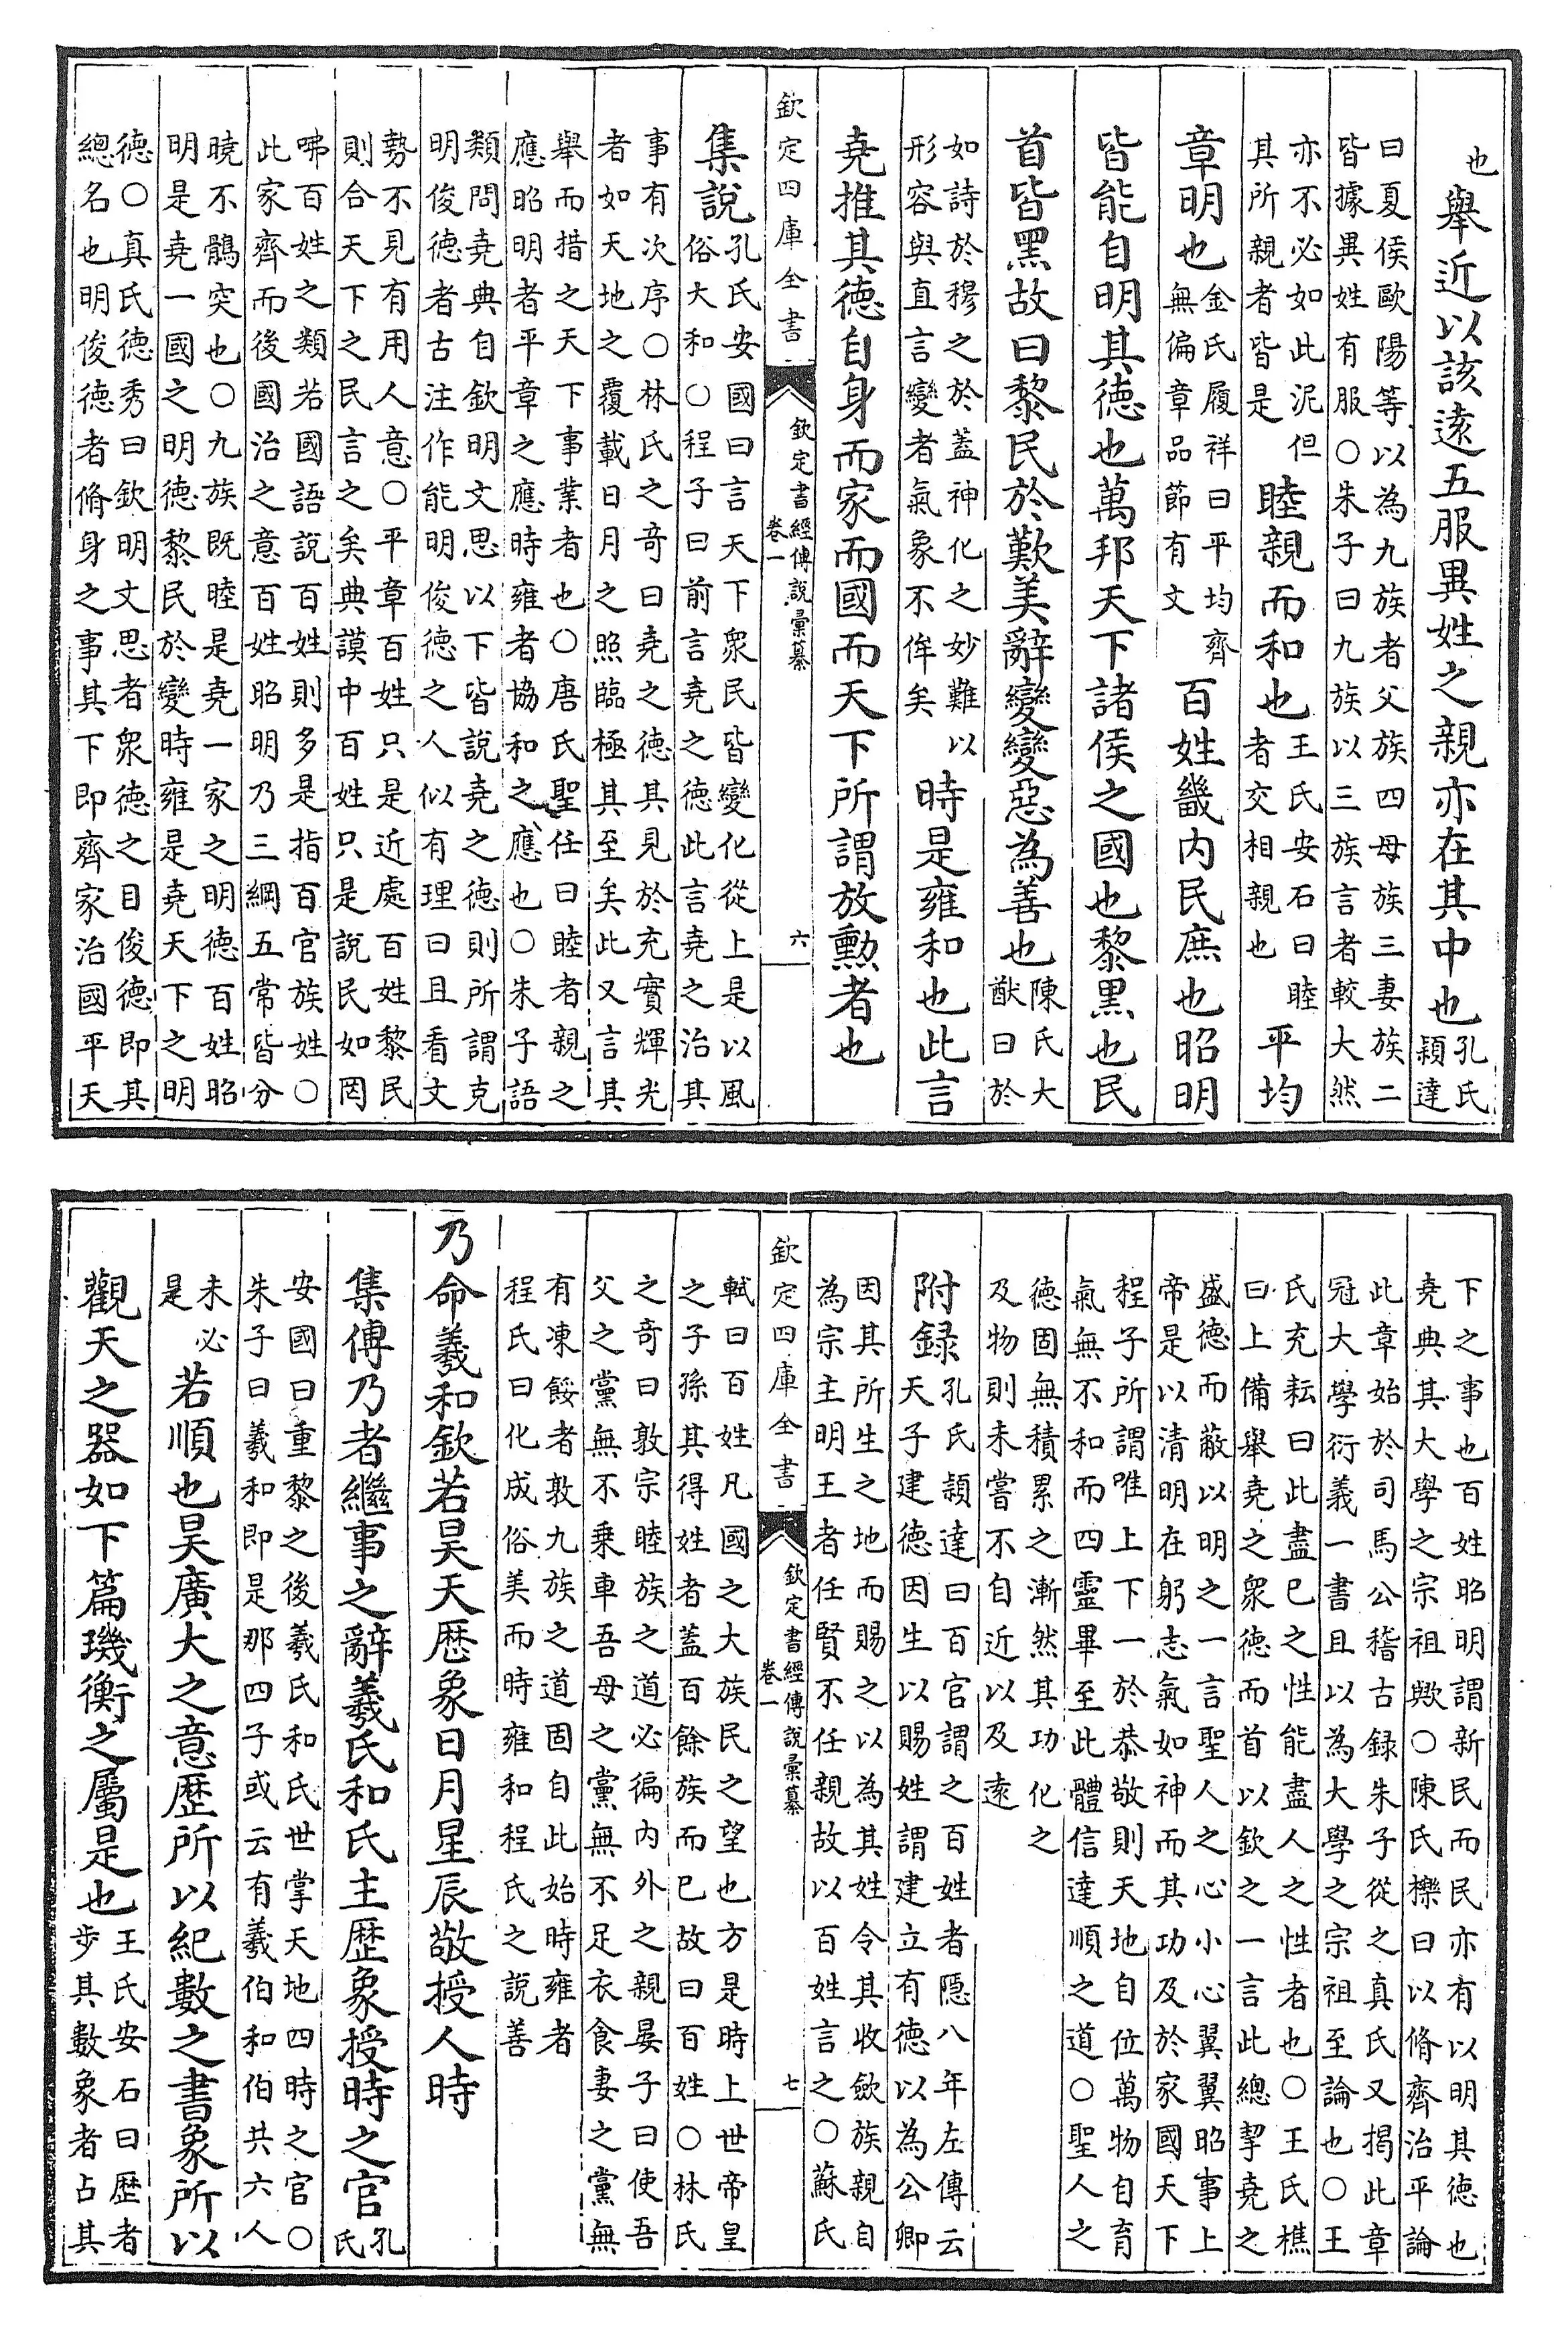 也舉近以該遠五服異姓之親亦在其中也孔氏穎達
曰夏侯歐陽等以為九族者父族四母族三妻族二
皆據異姓有服○朱子曰九族以三族言者較大然
亦不必如此泥但其所親者皆是睦親而和也王氏安石曰睦者交相親也平均
章明也金氏履祥曰平均齊無偏章品節有文百姓畿内民庶也昭明
皆能自明其徳也萬邦天下諸侯之國也黎黒也民
首皆黒故曰黎民於歎美辭變變惡為善也陳氏大猷曰於
如詩於穆之於蓋神化之妙難以形容與直言變者氣象不侔矣時是雍和也此言
堯推其徳自身而家而國而天下所謂放勲者也
欽定四庫全書 欽定書經傳說彙纂 卷一 六
集說孔氏安國曰言天下衆民皆變化從上是以風
俗大和○程子曰前言堯之徳此言堯之治其
事有次序○林氏之奇曰堯之徳其見於充實輝光
者如天地之覆載日月之照臨極其至矣此又言其
舉而措之天下事業者也○唐氏聖任曰睦者親之
應昭明者平章之應時雍者協和之應也○朱子語
類問堯典自欽明文思以下皆說堯之徳則所謂克
明俊徳者古注作能明俊徳之人似有理曰且看文
勢不見有用人意○平章百姓只是近處百姓黎民
則合天下之民言之矣典謨中百姓只是說民如罔
咈百姓之類若國語說百姓則多是指百官族姓○
此家齊而後國治之意百姓昭明乃三綱五常皆分
曉不鶻突也○九族既睦是堯一家之明徳百姓昭
明是堯一國之明徳黎民於變時雍是堯天下之明
徳○真氏徳秀曰欽明文思者衆徳之目俊徳即其
總名也明俊徳者脩身之事其下即齊家治國平天
下之事也百姓昭明謂新民而民亦有以明其徳也
堯典其大學之宗祖歟○陳氏櫟曰以脩齊治平論
此章始於司馬公稽古録朱子從之真氏又揭此章
冠大學衍義一書且以為大學之宗祖至論也○王
氏充耘曰此盡已之性能盡人之性者也○王氏樵
曰上備舉堯之衆徳而首以欽之一言此總挈堯之
盛徳而蔽以明之一言聖人之心小心翼翼昭事上
帝是以清明在躬志氣如神而其功及於家國天下
程子所謂唯上下一於恭敬則天地自位萬物自育
氣無不和而四靈畢至此體信達順之道○聖人之
徳固無積累之漸然其功化之
及物則未嘗不自近以及遠
附録孔氏穎達曰百官謂之百姓者隠八年左傳云
天子建徳因生以賜姓謂建立有徳以為公卿
因其所生之地而賜之以為其姓令其收歛族親自
為宗主明王者任賢不任親故以百姓言之○蘇氏
欽定四庫全書 欽定書經傳說彙纂 卷一 七
軾曰百姓凡國之大族民之望也方是時上世帝皇
之子孫其得姓者蓋百餘族而已故曰百姓○林氏
之奇曰敦宗睦族之道必徧内外之親晏子曰使吾
父之黨無不乗車吾母之黨無不足衣食妻之黨無
有凍餒者敦九族之道固自此始時雍者
程氏曰化成俗美而時雍和程氏之說善
乃命羲和欽若昊天厯象日月星辰敬授人時
集傳乃者繼事之辭羲氏和氏主厯象授時之官孔氏
安國曰重黎之後羲氏和氏世掌天地四時之官○
朱子曰羲和即是那四子或云有羲伯和伯共六人
未必是若順也昊廣大之意厯所以紀數之書象所以
觀天之器如下篇璣衡之屬是也王氏安石曰厯者步其數象者占其